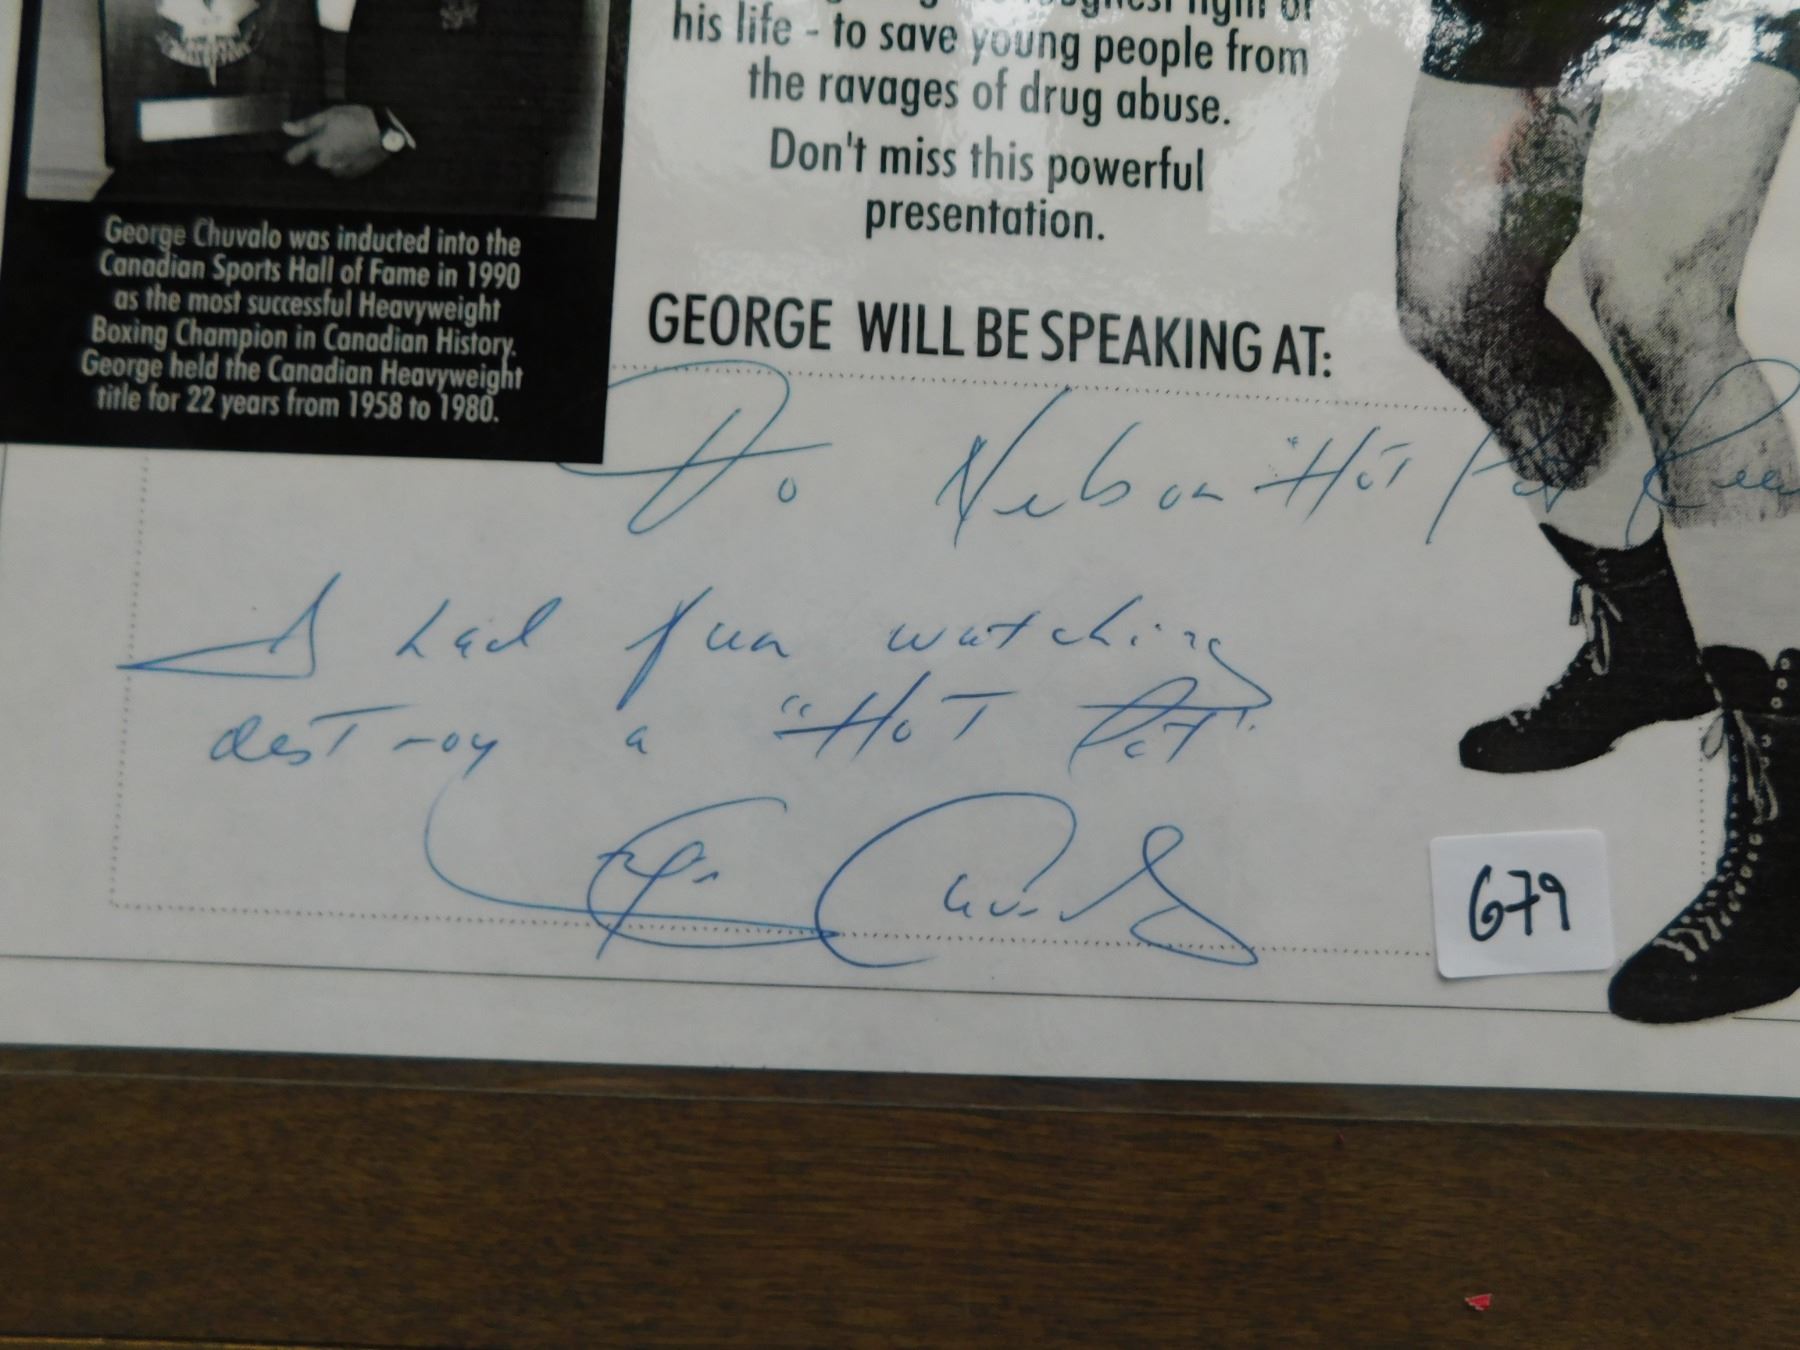 his life - to save young people from
the ravages of drug abuse.
Don't miss this powerful
presentation.
George Chuvalo was inducted into the
Canadian Sports Hall of Fame in 1990
as the most successful Heavyweight
Boxing Champion in Canadian History.
George held the Canadian Heavyweight
title for 22 years from 1958 to 1980.
GEORGE WILL BE SPEAKING AT:
To Nelson "Hot Pot
I had fun watching
destroy a "Hot Pot"
G79